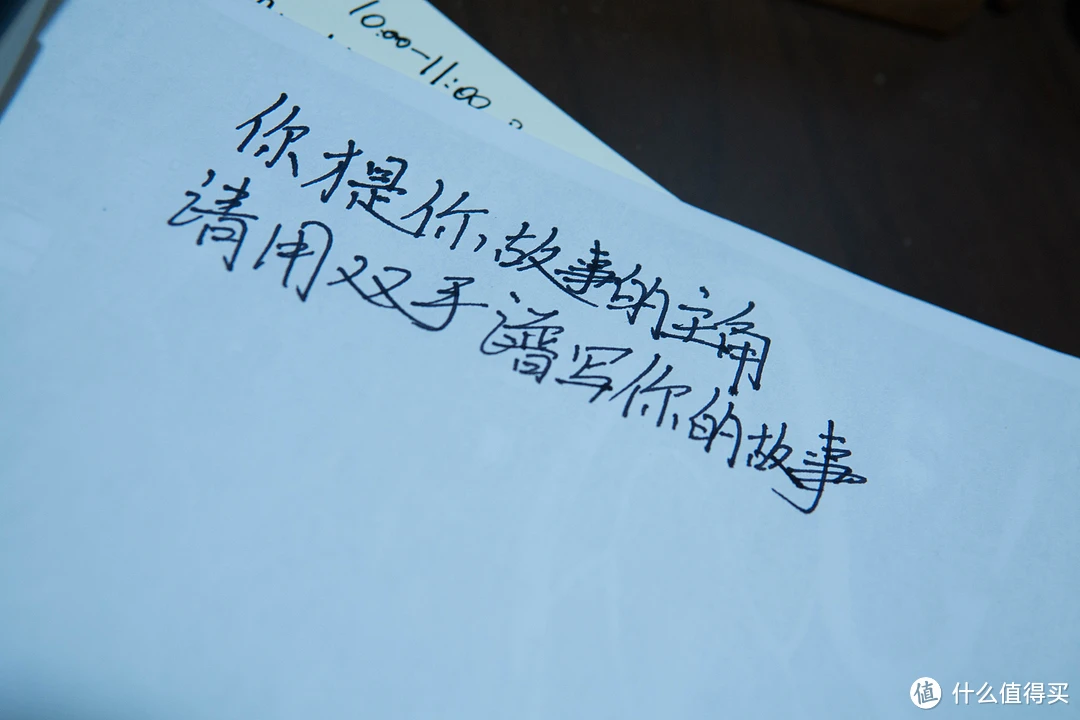 10:00-11:00
你才是你故事的主角
请用双手谱写你的故事
值 什么值得买